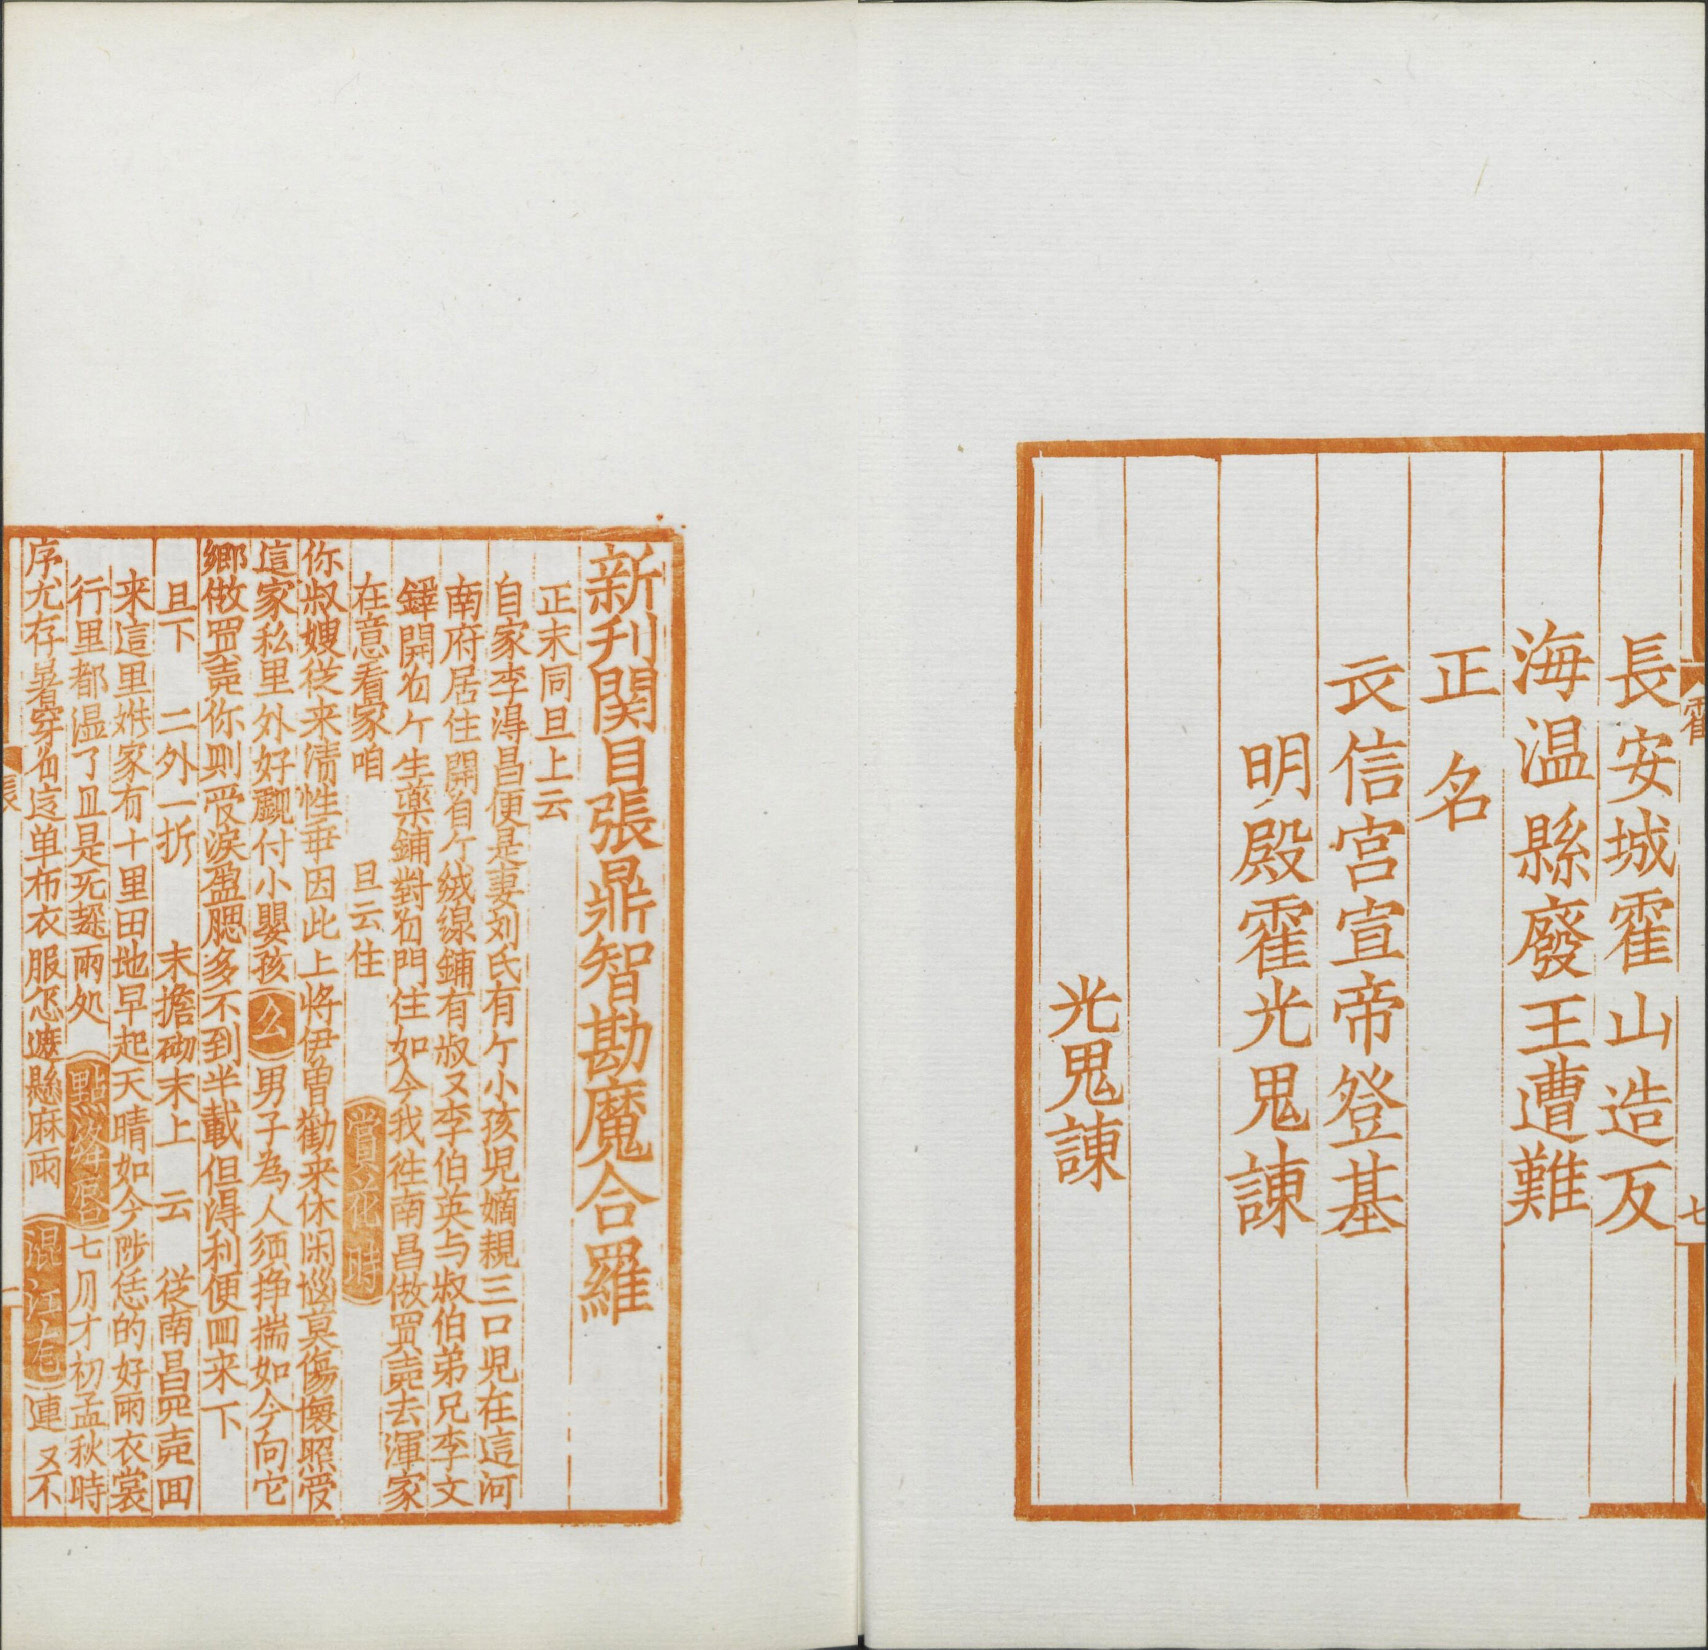 霍
七
長安城霍山造反
海温縣廢王遭難
正名
長信宮宣帝登基
明殿霍光鬼諫
光鬼諫
新刋関目張鼎智勘魔合羅
正末同旦上云
自家李得昌便是妻刘氏有个小孩児嫡親三口児在這河
南府居住開着个絨線鋪有叔叔李伯英与叔伯弟兄李文
鐸開着个生藥鋪對着門住如今我往南昌做買賣去渾家
在意看家咱 旦云住 賞花時
你叔嫂從来情性乖因此上将伊曽勸来休閑㑳莫傷懷照管
這家私里外好覷付小嬰孩 么 男子為人須掙揣如今向它
鄉做買賣你則管淚盈腮多不到半載但得利便囬来下
旦下 二外一折 末擔砌末上 云 從南昌買賣囬
来這里㛃家有十里田地早起天晴如今陟恁的好雨衣裳
行里都濕了且是无避雨処 點絳唇 七月才初孟秋時
序尤存暑穿着這单布衣服怎遮懸麻雨 混江龍 連又不
張
一